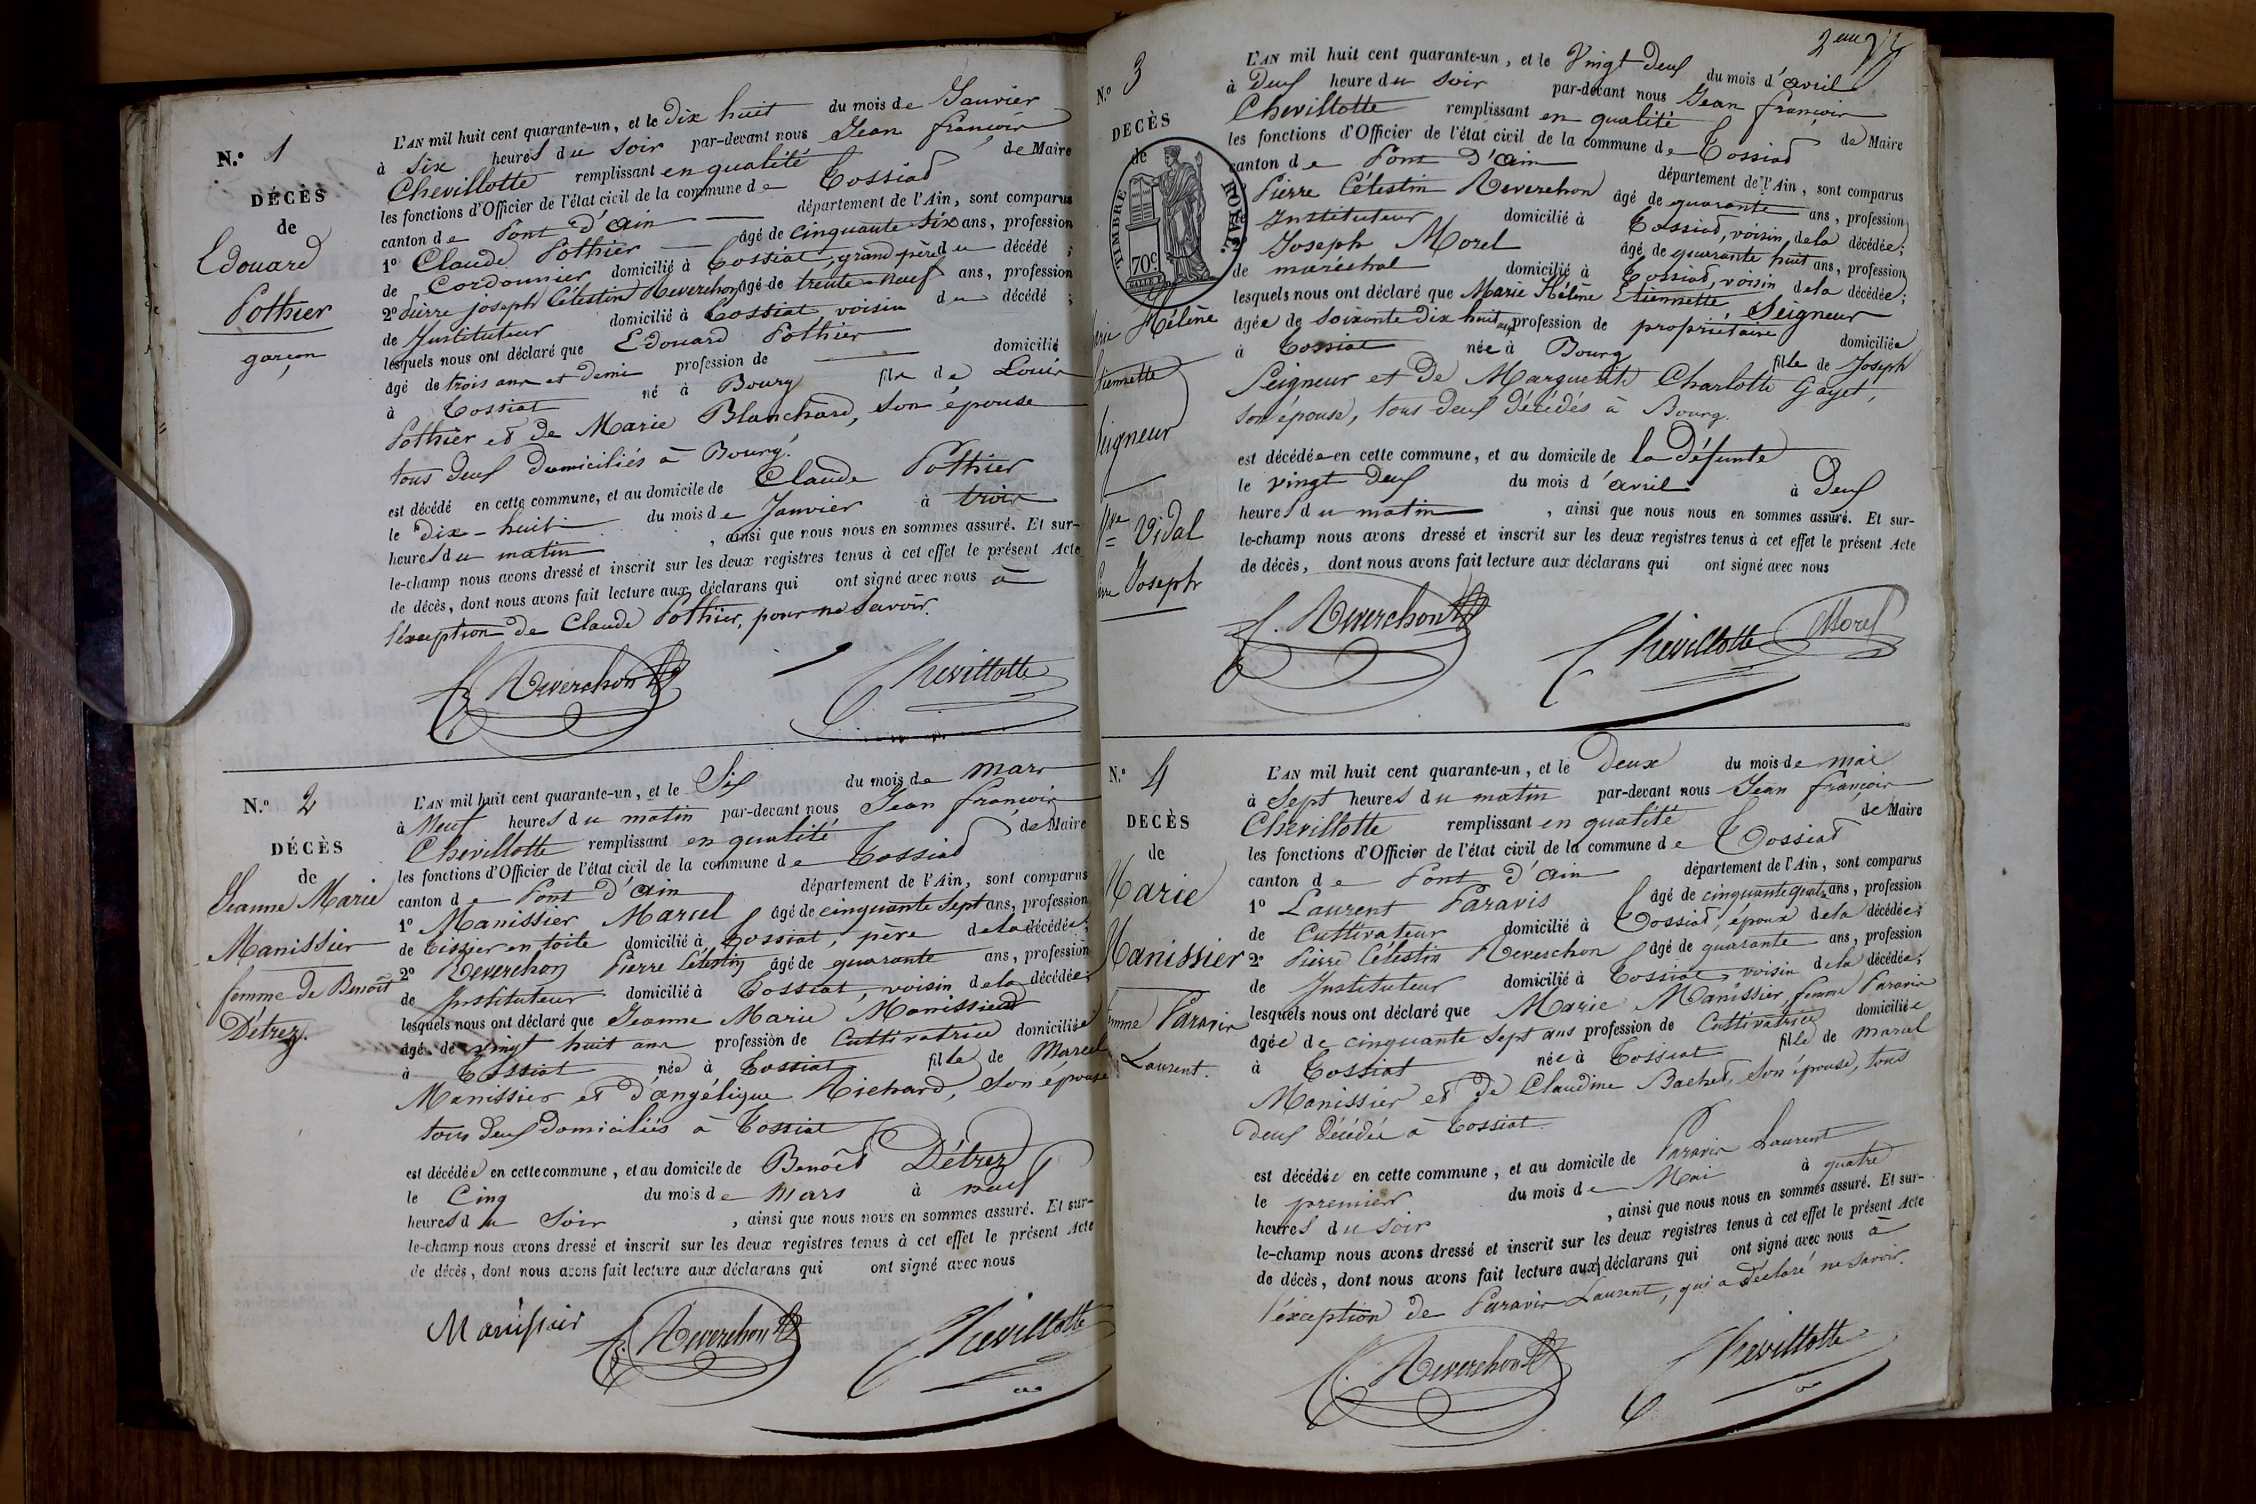 N.º 1
DÉCÈS
de
Edouard
Pothier
garçon
L'AN mil huit cent quarante-un, et le dix huit du mois de Janvier
à six heures du soir par-devant nous Jean françois
Chevillotte remplissant en qualité de Maire
les fonctions d'Officier de l'état civil de la commune de Tossiat
canton de Pont d'ain département de l'Ain, sont comparus
1º Claude Pothier âgé de cinquante six ans, profession
de Cordonnier domicilié à Tossiat, grand père du décédé ;
2º Pierre joseph Célestin Reverchon âgé de trente-neuf ans, profession
de Instituteur domicilié à Tossiat, voisin du décédé ;
lesquels nous ont déclaré que Edouard Pothier
âgé de trois ans et demi profession de domicilié
à Tossiat né à Bourg fils de Louis
Pothier et de Marie Blanchard, son épouse
tous deux domiciliés à Bourg.
est décédé en cette commune, et au domicile de Claude Pothier
le dix-huit du mois de Janvier à trois
heures du matin , ainsi que nous nous en sommes assuré. Et sur-
le-champ nous avons dressé et inscrit sur les deux registres tenus à cet effet le présent Acte
de décès, dont nous avons fait lecture aux déclarans qui ont signé avec nous à
l'éxception de Claude Pothier, pour ne savoir.
Reverchon Chevillotte
N.º 2
DÉCÈS
de
Jeanne Marie
Manissier
femme de Benoît
Détrez.
L'AN mil huit cent quarante-un, et le Six du mois de mars
à Neuf heures du matin par-devant nous Jean françois
Chevillotte remplissant en qualité de Maire
les fonctions d'Officier de l'état civil de la commune de Tossiat
canton de Pont d'ain département de l'Ain, sont comparus
1º Manissier Marcel âgé de cinquante sept ans, profession
de tissier en toile domicilié à Tossiat, père de la décédée ;
2º Reverchon Pierre Célestin âgé de quarante ans, profession
de Instituteur domicilié à Tossiat, voisin de la décédée ;
lesquels nous ont déclaré que Jeanne Marie Manissier
âgé de vingt huit ans profession de Cultivatrice domiciliée
à Tossiat née à Tossiat fille de Marcel
Manissier et d'angélique Richard, son épouse
tous deux domiciliés à Tossiat
est décédée en cette commune, et au domicile de Benoît Détrez
le Cinq du mois de Mars à neuf
heures du Soir , ainsi que nous nous en sommes assuré. Et sur-
le-champ nous avons dressé et inscrit sur les deux registres tenus à cet effet le présent Acte
de décès, dont nous avons fait lecture aux déclarans qui ont signé avec nous
Manissier Reverchon Chevillotte
2eme
N.º 3
DECÈS
de
TIMBRE ROYAL
70c
Hélène
Etiennette
Seigneur
Vve Vidal
Joseph
L'AN mil huit cent quarante-un, et le Vingt deux du mois d'avril
à Deux heure du soir par-devant nous Jean françois
Chevillotte remplissant en qualité de Maire
les fonctions d'Officier de l'état civil de la commune de Tossiat
canton de Pont d'ain département de l'Ain, sont comparus
Pierre Célestin Reverchon âgé de quarante ans, profession
Instituteur domicilié à Tossiat, voisin de la décédée ;
Joseph Morel âgé de quarante huit ans, profession
de maréchal domicilié à Tossiat, voisin de la décédée ;
lesquels nous ont déclaré que Marie Hélène Etiennette Seigneur
âgée de soixante dix huit ans profession de propriétaire domiciliée
à Tossiat née à Bourg fille de Joseph
Seigneur et de Marguerite Charlotte Gayet,
son épouse, tous deux décédés à Bourg.
est décédée en cette commune, et au domicile de la Défunte
le vingt deux du mois d'avril à Deux
heures du matin , ainsi que nous nous en sommes assuré. Et sur-
le-champ nous avons dressé et inscrit sur les deux registres tenus à cet effet le présent Acte
de décès, dont nous avons fait lecture aux déclarans qui ont signé avec nous
Reverchon Chevillotte Morel
N.º 4
DECÈS
de
Marie
Manissier
femme Paravis
Laurent.
L'AN mil huit cent quarante-un, et le Deux du mois de mai
à Sept heures du matin par-devant nous Jean françois
Chevillotte remplissant en qualité de Maire
les fonctions d'Officier de l'état civil de la commune de Tossiat
canton de Pont d'ain département de l'Ain, sont comparus
1º Laurent Paravis âgé de cinquante quatre ans, profession
de Cultivateur domicilié à Tossiat, époux de la décédée ;
2º Pierre Célestin Reverchon âgé de quarante ans, profession
de Instituteur domicilié à Tossiat, voisin de la décédée ;
lesquels nous ont déclaré que Marie Manissier, femme Paravis
âgée de cinquante sept ans profession de Cultivatrice domiciliée
à Tossiat née à Tossiat fille de marcel
Manissier et de Claudine Bachet, son épouse, tous
deux décédés à Tossiat.
est décédée en cette commune, et au domicile de Paravis Laurent
le premier du mois de Mai à quatre
heures du soir , ainsi que nous nous en sommes assuré. Et sur-
le-champ nous avons dressé et inscrit sur les deux registres tenus à cet effet le présent Acte
de décès, dont nous avons fait lecture aux déclarans qui ont signé avec nous à
l'éxception de Paravis Laurent, qui a déclaré ne savoir.
Reverchon Chevillotte